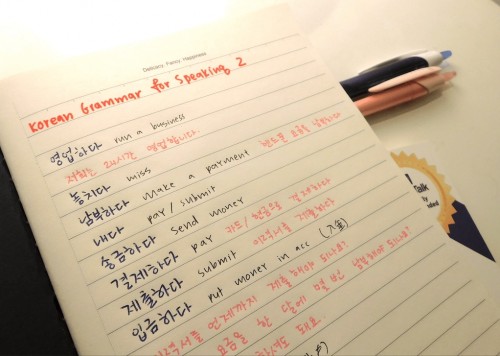 Delicacy, Fancy, Happiness
Korean Grammar for Speaking 2
영업하다 run a business
저희는 24시간 영업합니다.
놓치다 miss
납부하다 make a payment 핸드폰 요금을 납부하다
내다 pay / submit
송금하다 send money
결제하다 pay 카드/현금으로 결제하다
제출하다 submit 이력서를 제출하다
입금하다 put money in acc (入金)
언제까지 제출해야 되나요?
요금을 한 달에 몇 번 납부해야 되나요?
돼요.
!
Talk